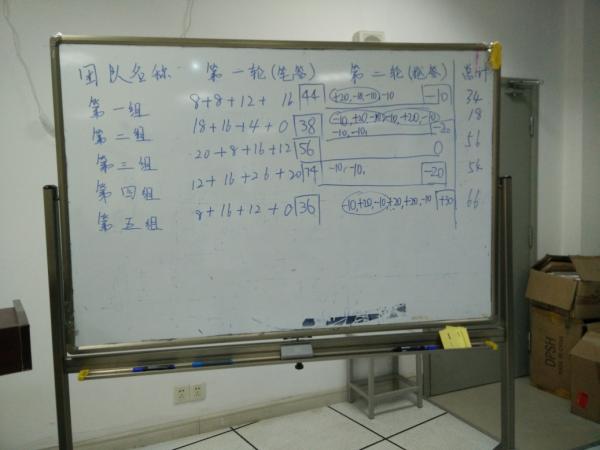 团队名称 第一轮(笔答) 第二轮(抢答) 总计
第一组 8+8+12+ 16 44 +20,-10,-10,-10 -10 34
第二组 18+16+4+0 38 -10,+20,-10,-10,+20,-10 18
-10,-10, -20
第三组 20+8+16+12 56 0 56
第四组 12+16+26+20 74 -10,-10, -20 54
第五组 8+16+12+0 36 -10,+20,-10,+20,+20,-10 +30 66
DPSH